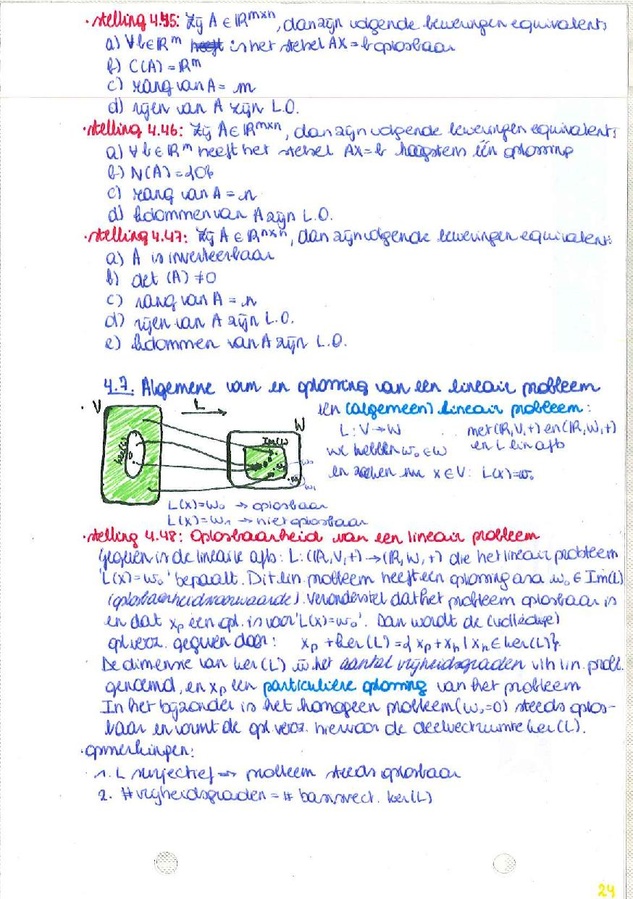 · stelling 4.45: Zij A ∈ ℝ^{m×n}, dan zijn volgende beweringen equivalent:
a) ∀b∈ℝ^m is het stelsel AX=b oplosbaar
b) C(A)=ℝ^m
c) rang van A = m
d) rijen van A zijn L.O.
· stelling 4.46: Zij A∈ℝ^{m×n}, dan zijn volgende beweringen equivalent:
a) ∀b∈ℝ^m heeft het stelsel AX=b hoogstens één oplossing
b) N(A)={0}
c) rang van A = n
d) kolommen van A zijn L.O.
· stelling 4.47: Zij A∈ℝ^{n×n}, dan zijn volgende beweringen equivalent:
a) A is inverteerbaar
b) det (A) ≠0
c) rang van A = n
d) rijen van A zijn L.O.
e) kolommen van A zijn L.O.
4.7. Algemene vorm en oplossing van een lineair probleem
· V L W
ker(L) 0 Im(L) w₀ w₁
een (algemeen) lineair probleem:
L: V→W met (ℝ,V,+) en (ℝ,W,+)
we hebben w₀∈W en L lin afb
en zoeken nu x∈V: L(x)=w₀
L(x)=w₀ → oplosbaar
L(x)=w₁ → niet oplosbaar
· stelling 4.48: Oplosbaarheid van een lineair probleem
Gegeven is de lineaire afb: L:(ℝ,V,+)→(ℝ,W,+) die het lineair probleem
'L(x)=w₀' bepaalt. Dit lin. probleem heeft een oplossing asa w₀∈Im(L)
(oplosbaarheidsvoorwaarde). Veronderstel dat het probleem oplosbaar is
en dat xₚ een opl. is voor 'L(x)=w₀'. Dan wordt de (volledige)
opl.verz. gegeven door: xₚ+ker(L)={xₚ+xₕ|xₕ∈ker(L)}.
De dimensie van ker(L) is het aantal vrijheidsgraden v/h lin. probl.
genoemd, en xₚ een particuliere oplossing van het probleem
In het bijzonder is het homogeen probleem (w₀=0) steeds oplos-
baar en vormt de opl verz. hiervoor de deelvectruimte ker(L).
· opmerkingen:
1. L surjectief → probleem steeds oplosbaar
2. # vrijheidsgraden = # basisvect. ker(L)
24